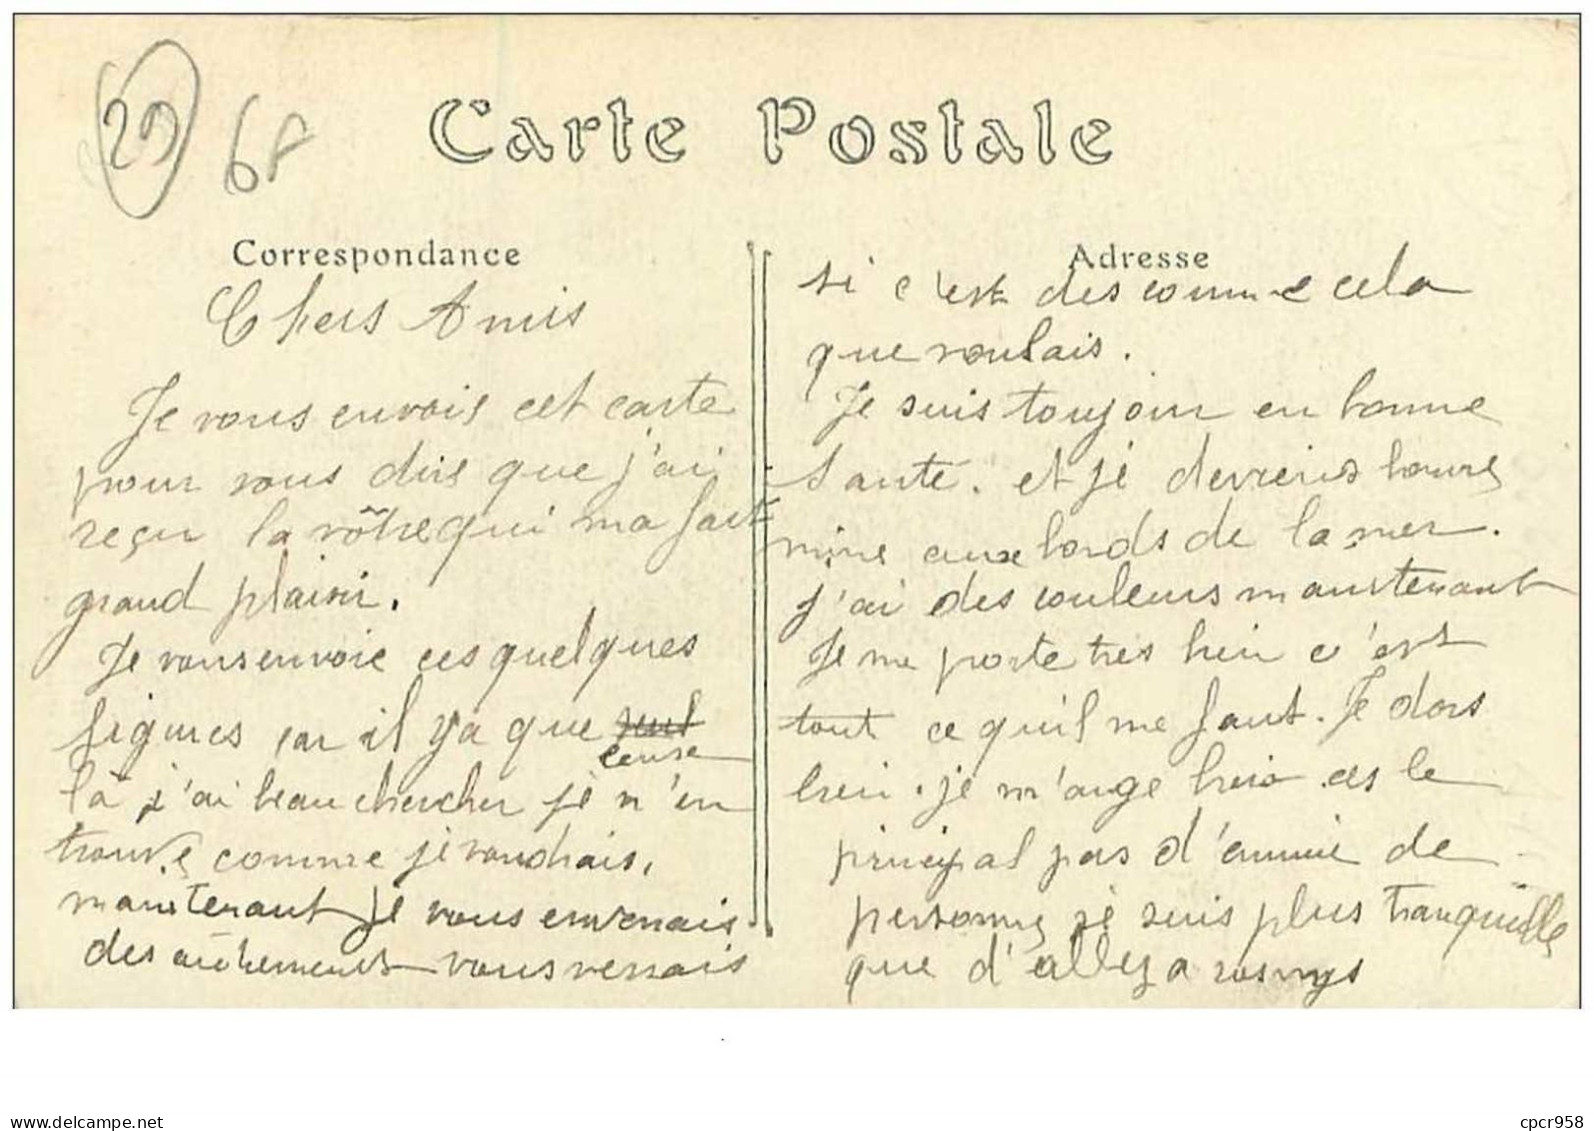 29
6F
Carte Postale
Correspondance
Chers Amis
Je vous envois cet carte
pour vous dire que j'ai
reçu la vôtre qui ma fait
grand plaisir.
Je vous envoie ces quelques
figures car il y a que
ceuse
là j'ai beau chercher je n'en
trouve comme je voudrais,
maintenant je vous enverrais
des autrements vous verrais
Adresse
si c'est des comme cela
que voulais.
Je suis toujour en bonne
Santé. et je deviens bonne
mine aux bords de la mer.
j'ai des couleurs maintenant
Je me porte tres bien c'est
tout ce qu'il me faut. Je dors
bien. je m'ange bien ces le
principal pas d'ennuie de
personne je suis plus tranquille
que d'allez a rosnys
www.delcampe.net
cpcr958